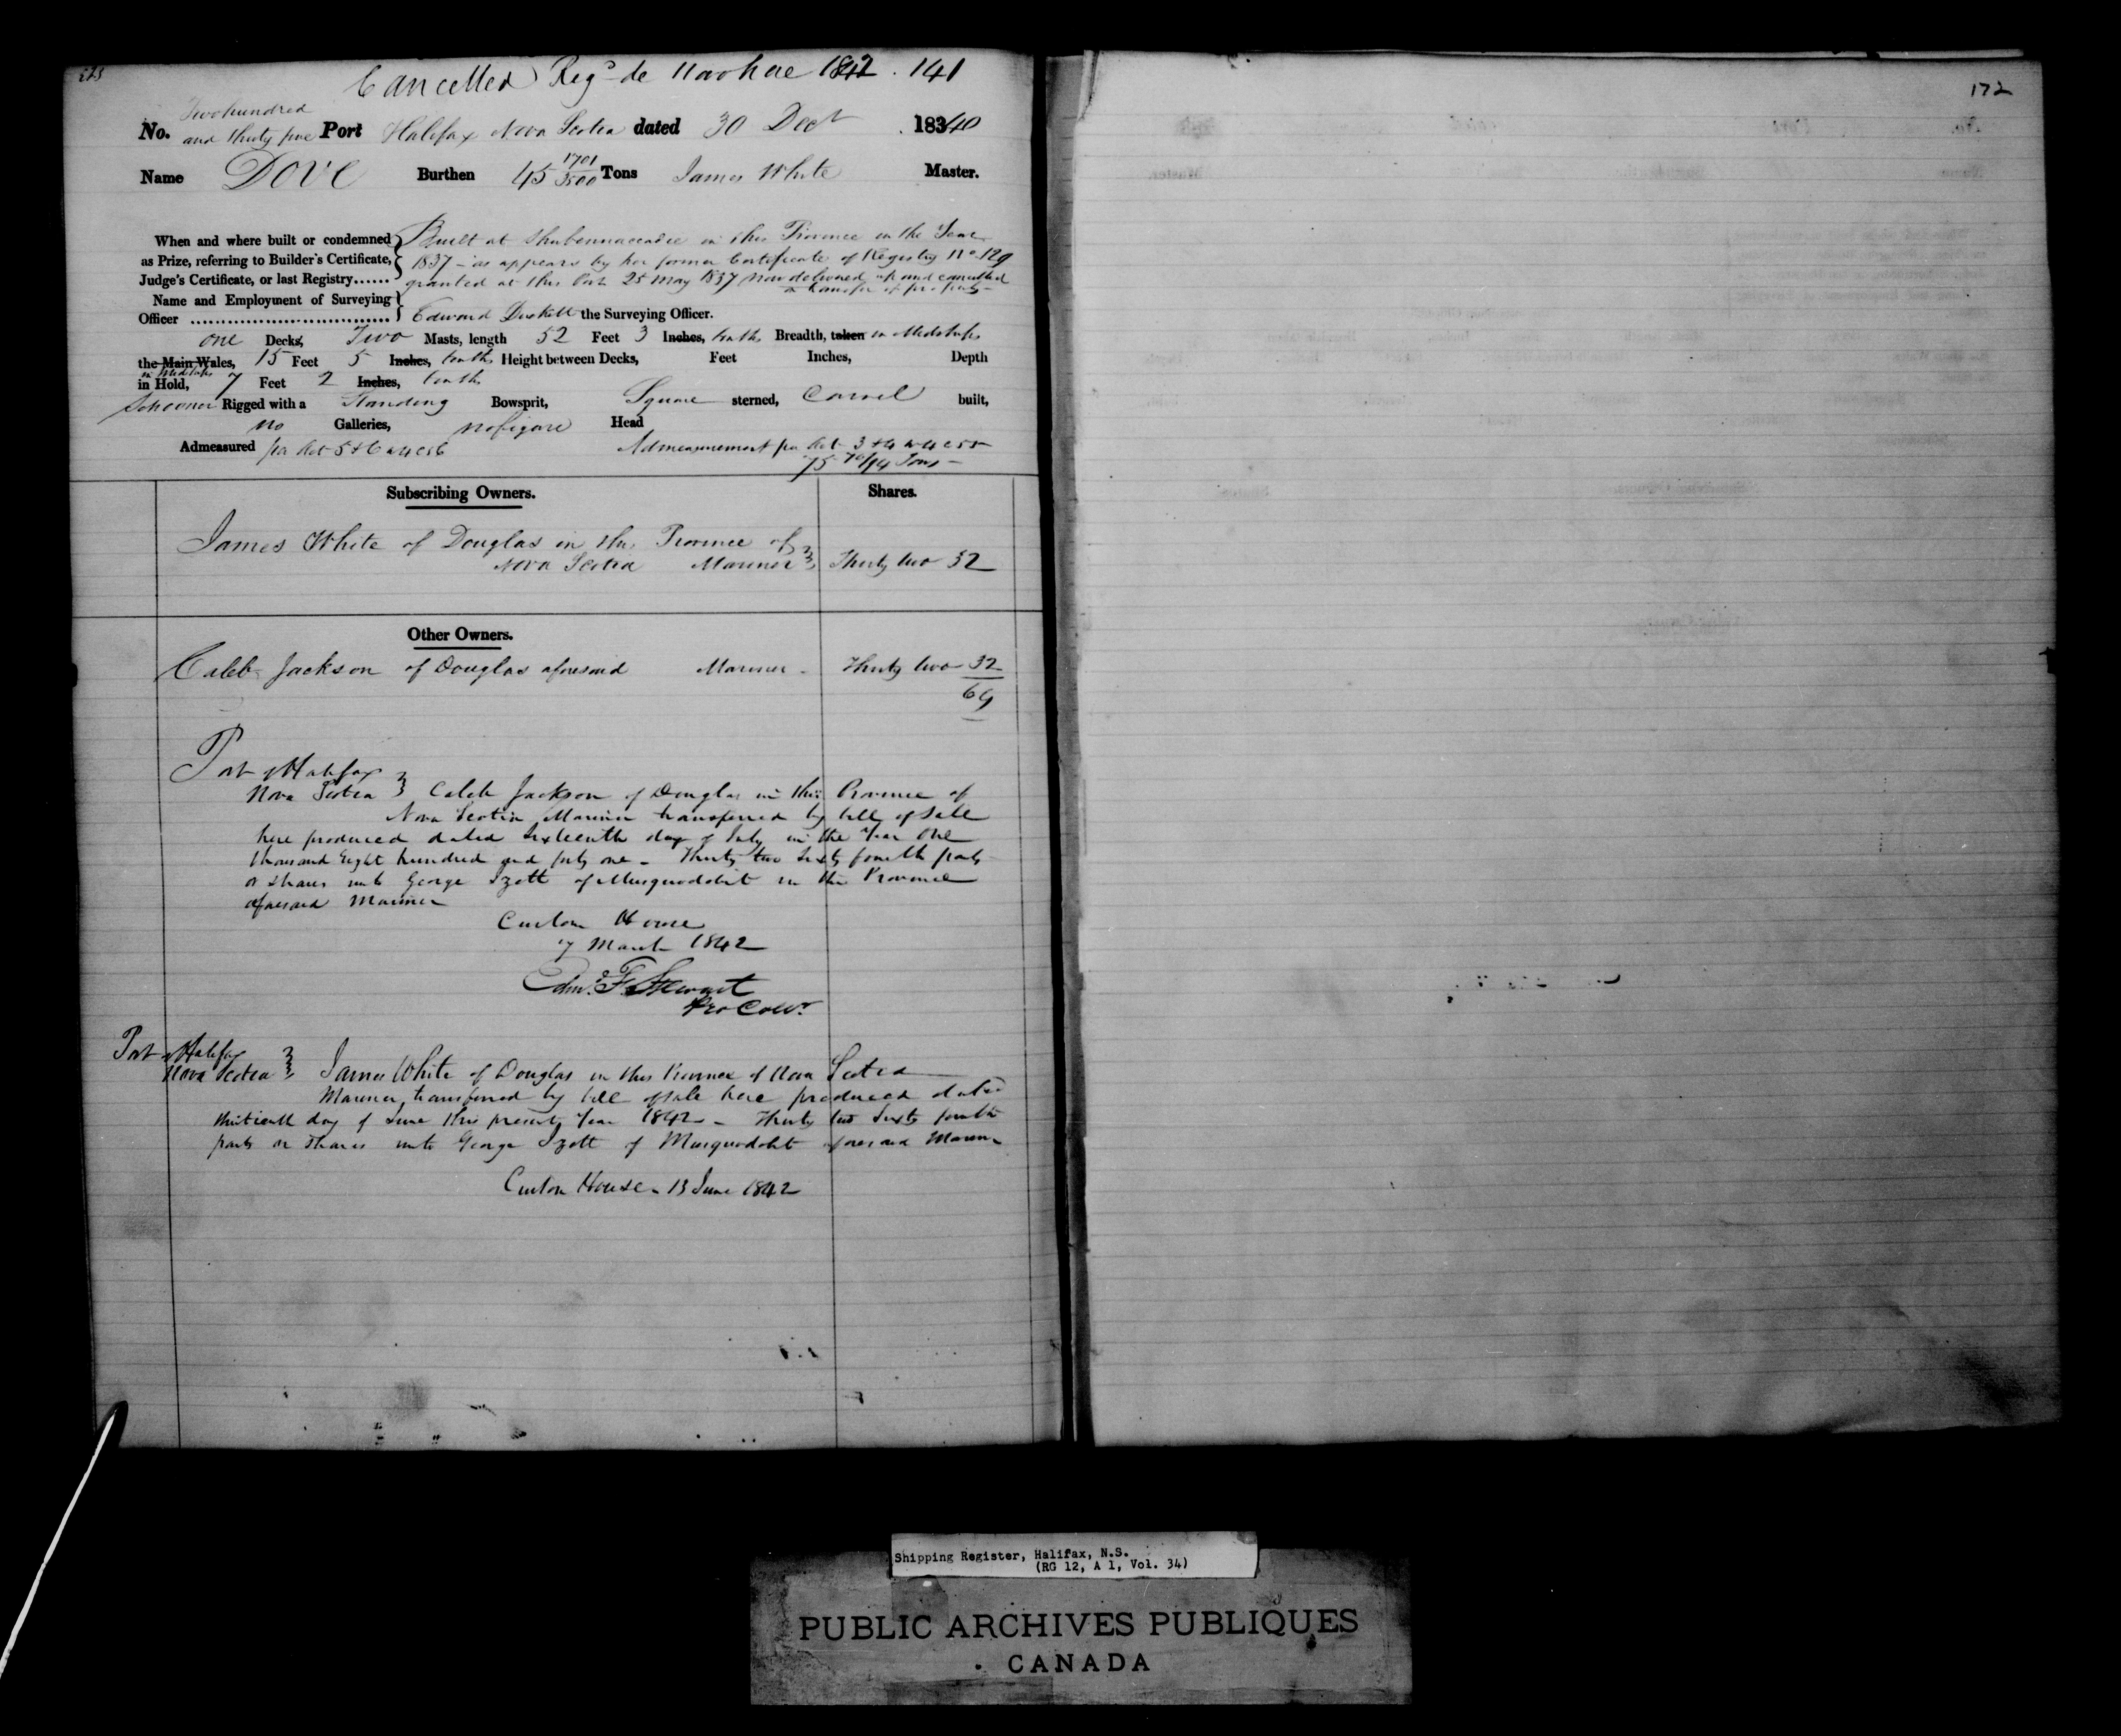 Cancelled Regd de Novo hae 1842 . 141
Two hundred
No. and thirty five Port Halifax Nova Scotia dated 30 Decr 18340
Name Dove Burthen 45 1701/3500 Tons James White Master.
When and where built or condemned Built at Shubennaccadie in this Province in the Year
as Prize, referring to Builder's Certificate, 1837 - as appears by her former Certificate of Registry No 129
Judge's Certificate, or last Registry...... granted at this Port 25 May 1837 now delivered up and cancelled
a transfer of property -
Name and Employment of Surveying
Officer ................................. Edward the Surveying Officer.
One Decks, Two Masts, length 52 Feet 3 Inches, tenths Breadth, taken in Midships
the Main Wales, 15 Feet 5 Inches, tenths Height between Decks, Feet Inches, Depth
in Midships
in Hold, 7 Feet 2 Inches, tenths
Schooner Rigged with a Standing Bowsprit, Square sterned, Carvel built,
no Galleries, no figure Head
Admeasured per Act 5 & 6 W 4 c 56 Admeasurement per Act 3 & 4 W 4 c 55
75 Tons -
Subscribing Owners. Shares.
James White of Douglas in the Province of
Nova Scotia Mariner Thirty two 32
Other Owners.
Caleb Jackson of Douglas aforesaid Mariner - Thirty two 32
64
Port of Halifax
Nova Scotia Caleb Jackson of Douglas in this Province of
Nova Scotia Mariner transferred by bill of sale
here produced dated Sixteenth day of July in the Year One
thousand Eight hundred and forty one - Thirty two Sixty fourth parts
or shares unto George Izott of Musquodobit in the Province
aforesaid Mariner
Custom House
7 March 1842
Edmd F Stewart
Pro Collr.
Port of Halifax
Nova Scotia James White of Douglas in this Province of Nova Scotia
Mariner, transferred by bill of sale here produced dated
thirtieth day of June this present Year 1842 - Thirty two Sixty fourth
parts or shares unto George Izott of Musquodobit aforesaid Mariner
Custom House - 13 June 1842
172
Shipping Register, Halifax, N.S.
(RG 12, A 1, Vol. 34)
PUBLIC ARCHIVES PUBLIQUES
CANADA